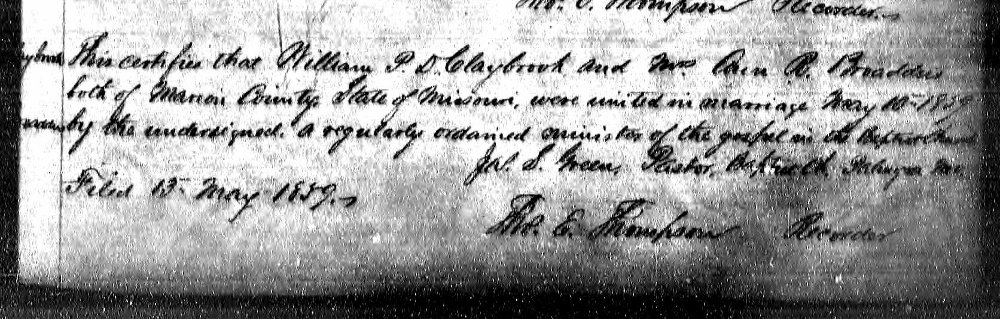 Tho. E. Thompson Recorder
This certifies that William P. D. Claybrook and Mrs Ann R. Broaddus
both of Marion County State of Missouri, were united in marriage May 10 1859
by the undersigned. a regularly ordained minister of the gospel in the Baptist Church
Jas. S. Green, Pastor, Bapt. Ch.
Filed 13 May 1859.
Tho. E. Thompson Recorder